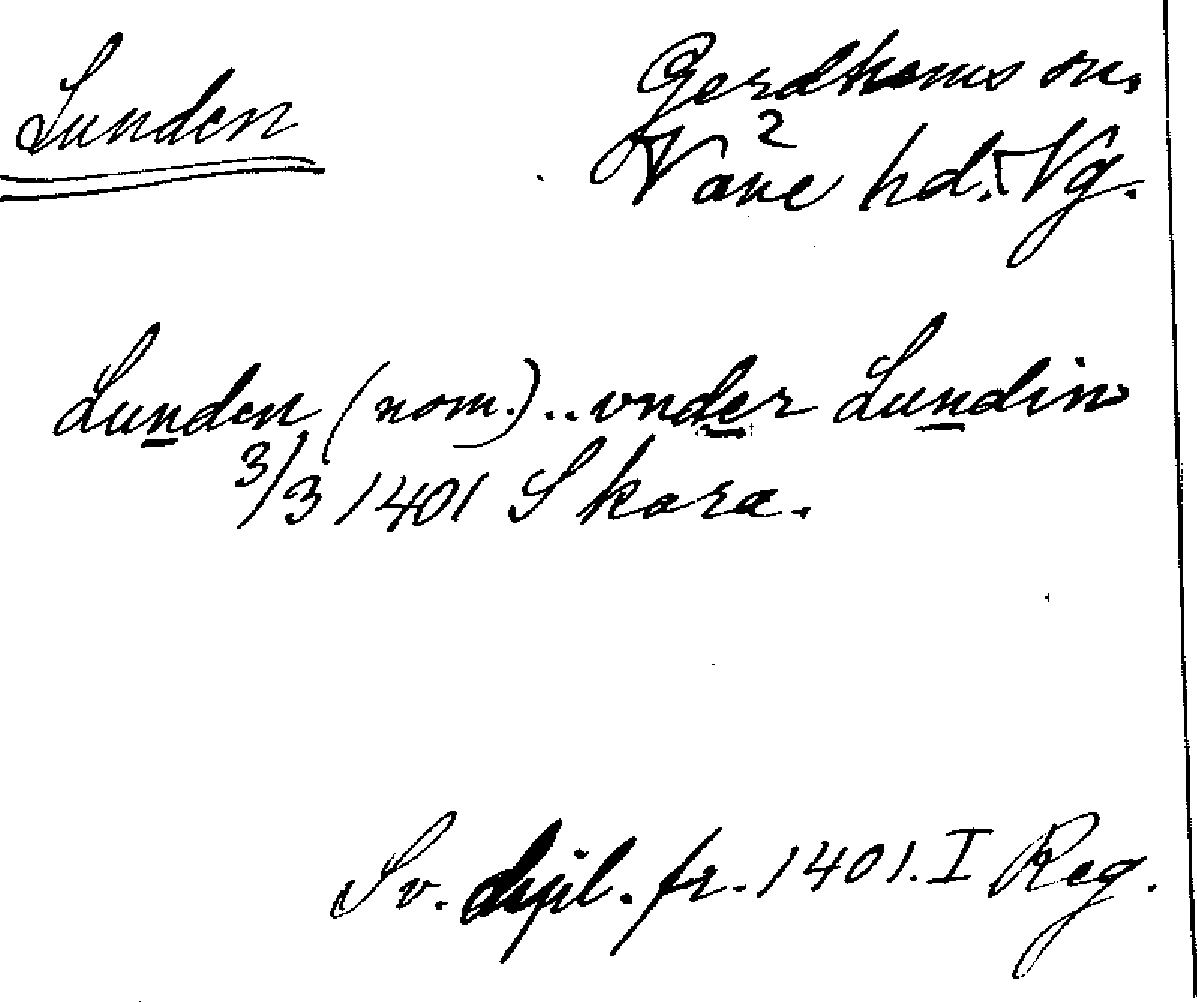 Lunden
Gerdhems sn,
2
Väne hd. Vg.
Lunden (nom.) .. vnder Lundin
3/3 1401 Skara.
Sv. dipl. fr. 1401. I Reg.